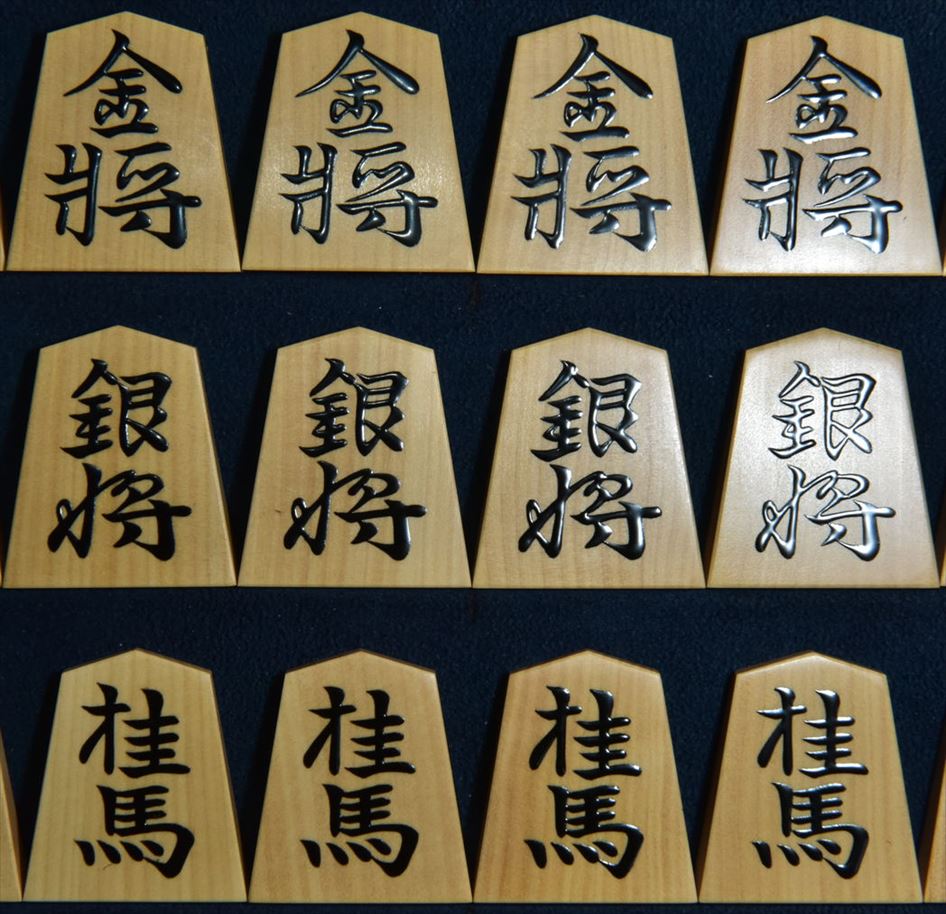 金將 金將 金將 金將
銀将 銀将 銀将 銀将
桂馬 桂馬 桂馬 桂馬